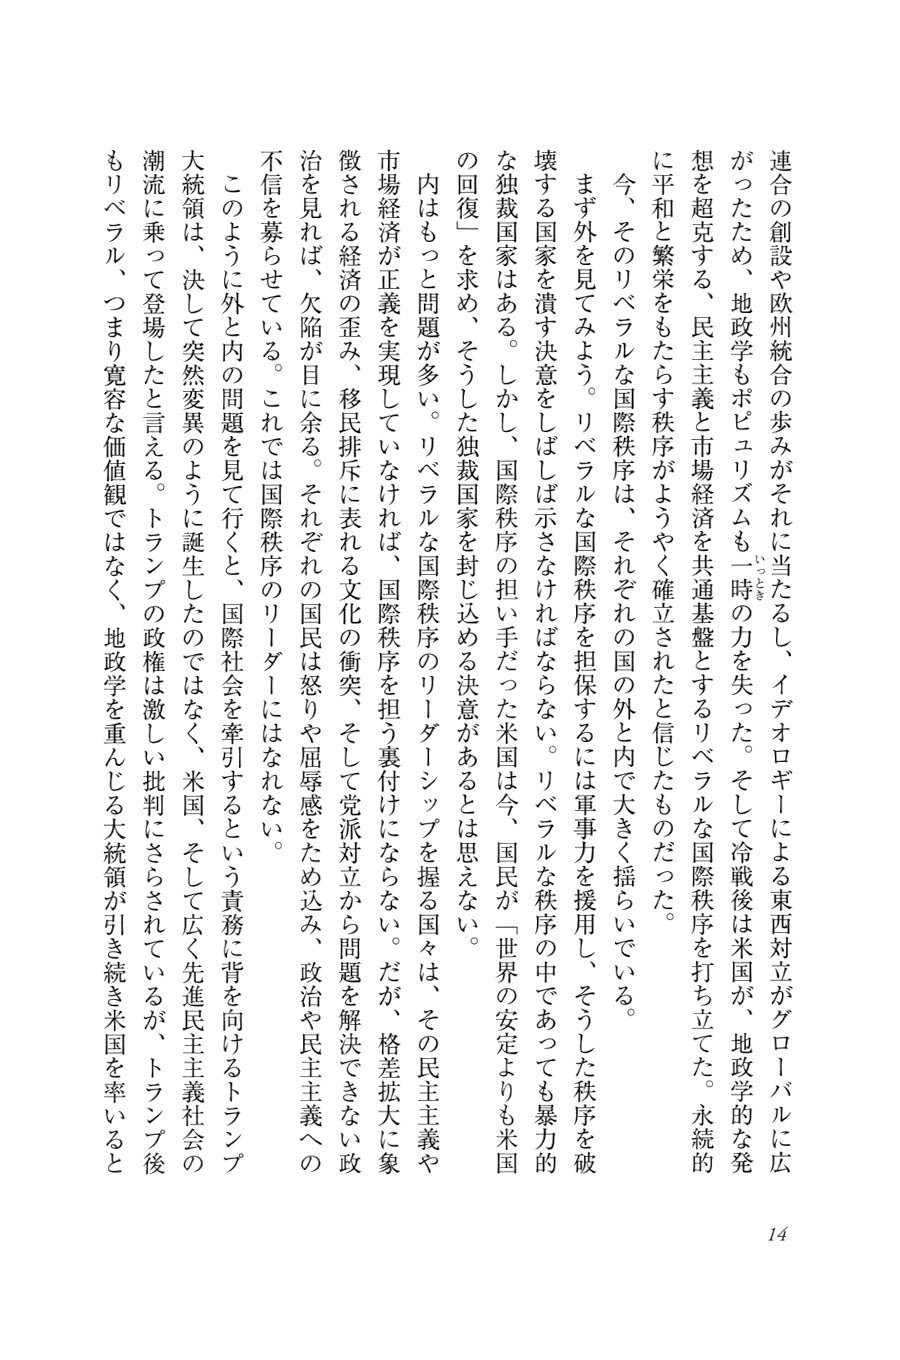 連合の創設や欧州統合の歩みがそれに当たるし、イデオロギーによる東西対立がグローバルに広
がったため、地政学もポピュリズムも一時の力を失った。そして冷戦後は米国が、地政学的な発
いっとき
想を超克する、民主主義と市場経済を共通基盤とするリベラルな国際秩序を打ち立てた。永続的
に平和と繁栄をもたらす秩序がようやく確立されたと信じたものだった。
今、そのリベラルな国際秩序は、それぞれの国の外と内で大きく揺らいでいる。
まず外を見てみよう。リベラルな国際秩序を担保するには軍事力を援用し、そうした秩序を破
壊する国家を潰す決意をしばしば示さなければならない。リベラルな秩序の中であっても暴力的
な独裁国家はある。しかし、国際秩序の担い手だった米国は今、国民が「世界の安定よりも米国
の回復」を求め、そうした独裁国家を封じ込める決意があるとは思えない。
内はもっと問題が多い。リベラルな国際秩序のリーダーシップを握る国々は、その民主主義や
市場経済が正義を実現していなければ、国際秩序を担う裏付けにならない。だが、格差拡大に象
徴される経済の歪み、移民排斥に表れる文化の衝突、そして党派対立から問題を解決できない政
治を見れば、欠陥が目に余る。それぞれの国民は怒りや屈辱感をため込み、政治や民主主義への
不信を募らせている。これでは国際秩序のリーダーにはなれない。
このように外と内の問題を見て行くと、国際社会を牽引するという責務に背を向けるトランプ
大統領は、決して突然変異のように誕生したのではなく、米国、そして広く先進民主主義社会の
潮流に乗って登場したと言える。トランプの政権は激しい批判にさらされているが、トランプ後
もリベラル、つまり寛容な価値観ではなく、地政学を重んじる大統領が引き続き米国を率いると
14